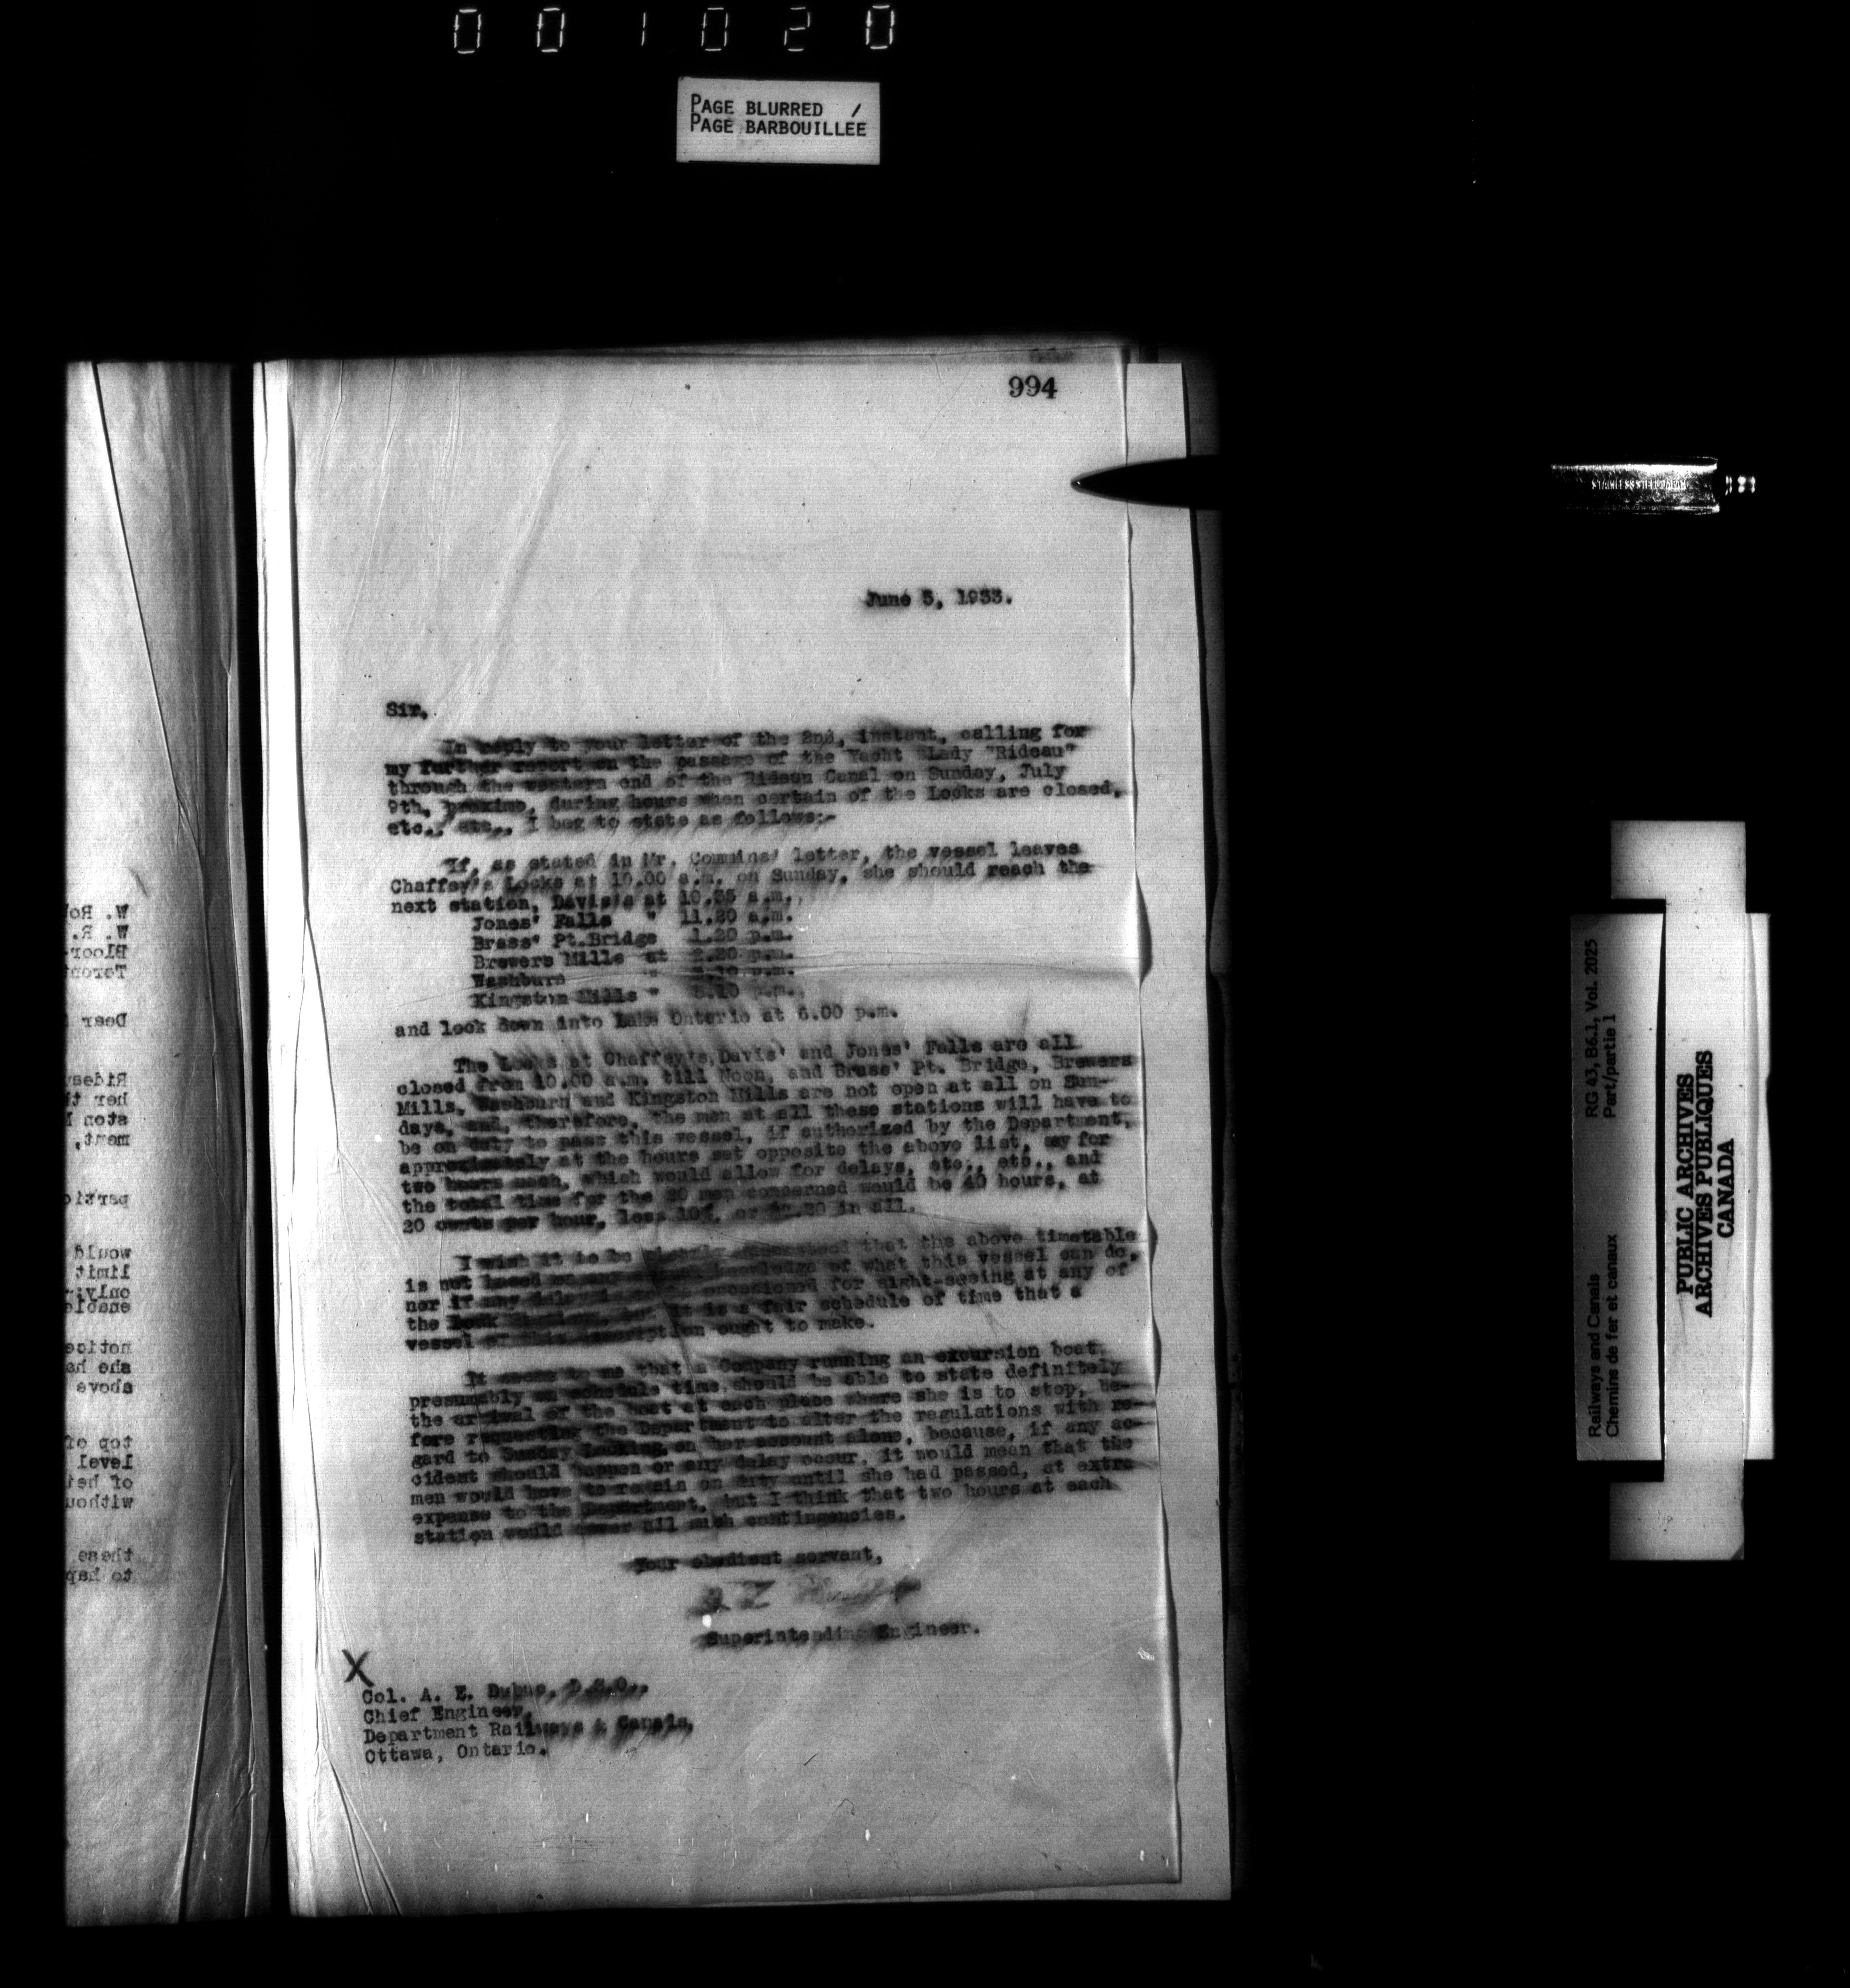 001020
PAGE BLURRED /
PAGE BARBOUILLEE
994
June 5, 1933.
Sir,
In reply to your letter of the 2nd, instant, calling for
my further report on the passage of the Yacht "Lady "Rideau"
through the western end of the Rideau Canal on Sunday, July
9th, proximo, during hours when certain of the Locks are closed,
etc., etc., I beg to state as follows:-
If, as stated in Mr. Commins' letter, the vessel leaves
Chaffey's Locks at 10.00 a.m. on Sunday, she should reach the
next station, Davis's at 10.35 a.m.,
Jones' Falls " 11.20 a.m.
Brass' Pt.Bridge 1.20 p.m.
Brewers Mills at 2.20 p.m.
Washburn " p.m.
Kingston Mills " 5.10 p.m.,
and lock down into Lake Ontario at 6.00 p.m.
The Locks at Chaffey's, Davis' and Jones' Falls are all
closed from 10.00 a.m. till Noon, and Brass' Pt. Bridge, Brewers
Mills, Washburn and Kingston Mills are not open at all on Sun-
days, and, therefore, the men at all these stations will have to
be on duty to pass this vessel, if authorized by the Department,
approximately at the hours set opposite the above list, say for
two hours each, which would allow for delays, etc., etc., and
the total time for the 20 men concerned would be 40 hours, at
20 cents per hour, less 10%, or in all.
I wish it to be clearly understood that the above timetable
is not based on any of what this vessel can do,
nor if any delay is occasioned for sight-seeing at any of
the Lock it is a fair schedule of time that a
vessel of this description ought to make.
It seems to me that a Company running an excursion boat,
presumably on schedule time, should be able to state definitely
the arrival of the boat at each place where she is to stop, be-
fore requesting the Department to alter the regulations with re-
gard to Sunday Locking, on her account alone, because, if any ac-
cident should happen or any delay occur, it would mean that the
men would have to remain on duty until she had passed, at extra
expense to the Department, but I think that two hours at each
station would cover all such contingencies.
Your obedient servant,
Superintending Engineer.
X
Col. A. E. Dubuc, D.S.O.,
Chief Engineer,
Department Railways & Canals,
Ottawa, Ontario.
W. Ro
W. R.
Bloor
Toront
Dear
Rideau
her th
ston M
ment,
partic
would
limit
only;
enable
notice
she ha
above
top of
level
of hei
withou
these
to hap
Railways and Canals
Chemins de fer et canaux
RG 43, B6.1, Vol. 2025
Part/partie 1
PUBLIC ARCHIVES
ARCHIVES PUBLIQUES
CANADA